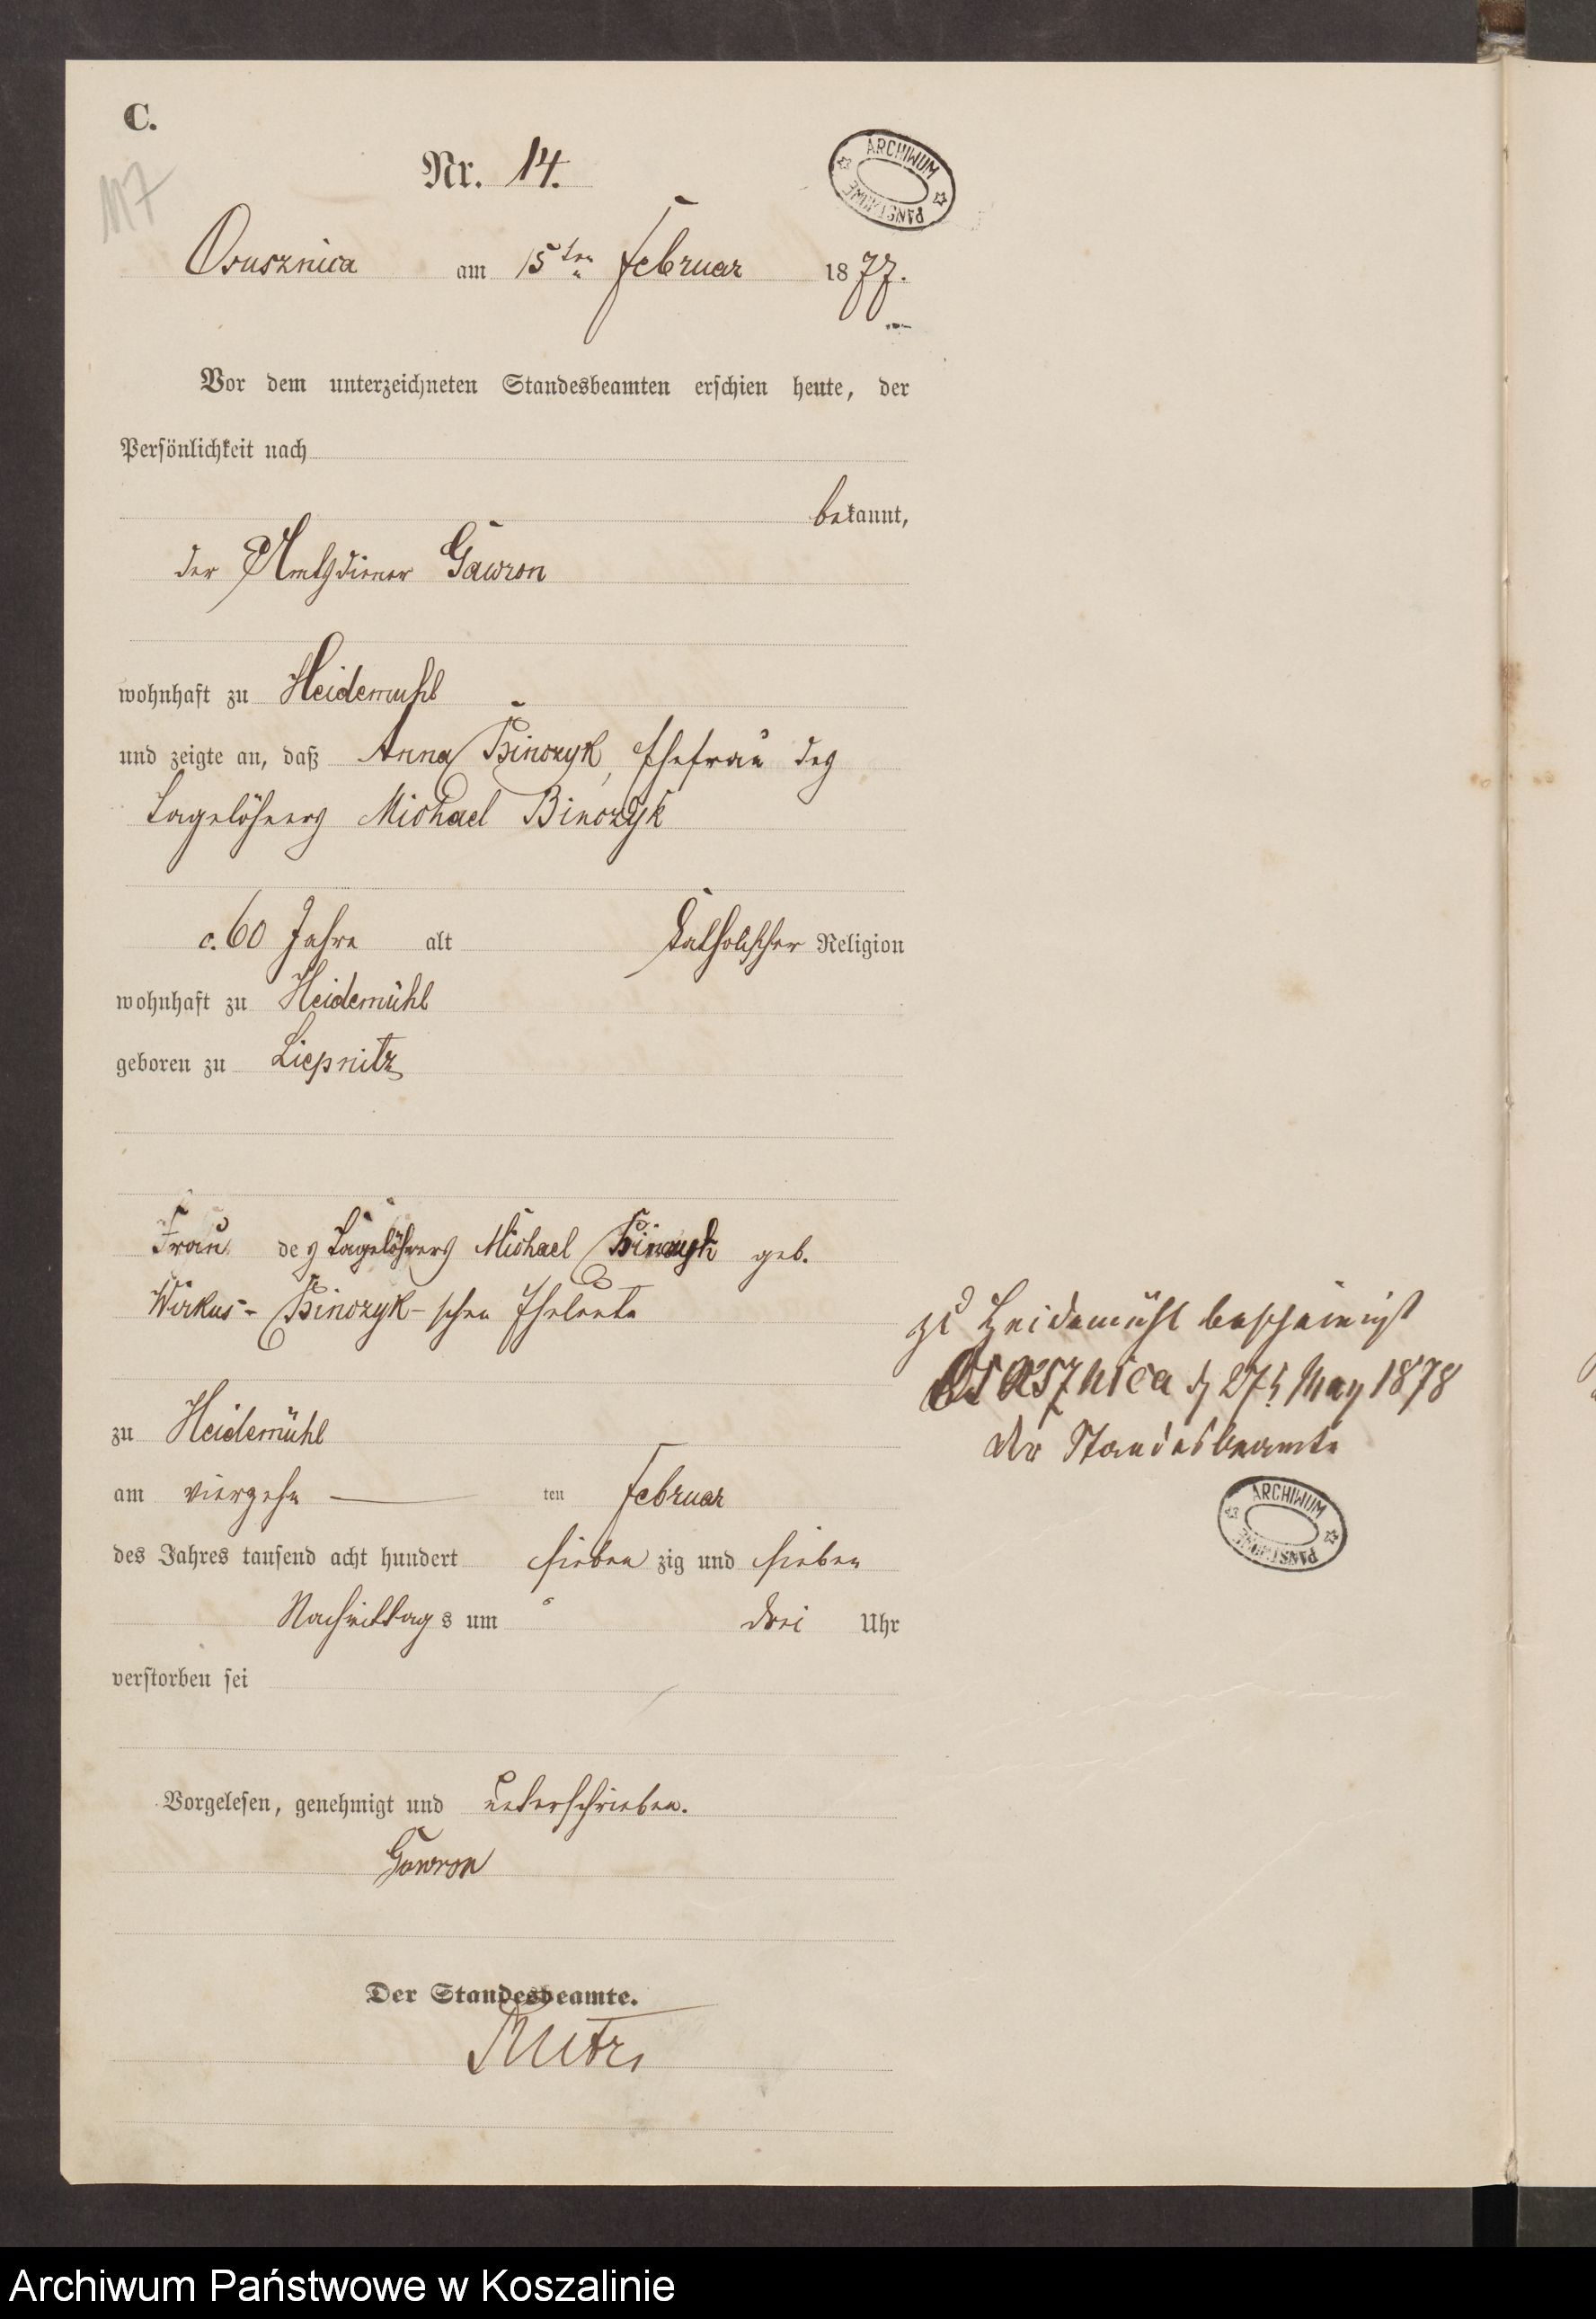 C.
Nr. 14.
117
ARCHIWUM PAŃSTWOWE
Osusznica am 15ten Februar 1877.
Vor dem unterzeichneten Standesbeamten erschien heute, der
Persönlichkeit nach
bekannt,
der Amtsdiener Gawron
wohnhaft zu Heidemuhl
und zeigte an, daß Anna Binczyk, Ehefrau des
Tagelöhners Michael Binczyk
c. 60 Jahre alt katholischer Religion
wohnhaft zu Heidemühl
geboren zu Liepnitz
Frau des Tagelöhners Michael Binczyk geb.
Wirkus- Binczyk-schen Eheleute
zu Heidemühl bescheinigt
Osusznica d. 27t May 1878
der Standesbeamte
ARCHIWUM PAŃSTWOWE
zu Heidemühl
am vierzehn ten Februar
des Jahres tausend acht hundert sieben zig und sieben
Nachmittags um drei Uhr
verstorben sei
Vorgelesen, genehmigt und unterschrieben.
Gawron
Der Standesbeamte.
Archiwum Państwowe w Koszalinie